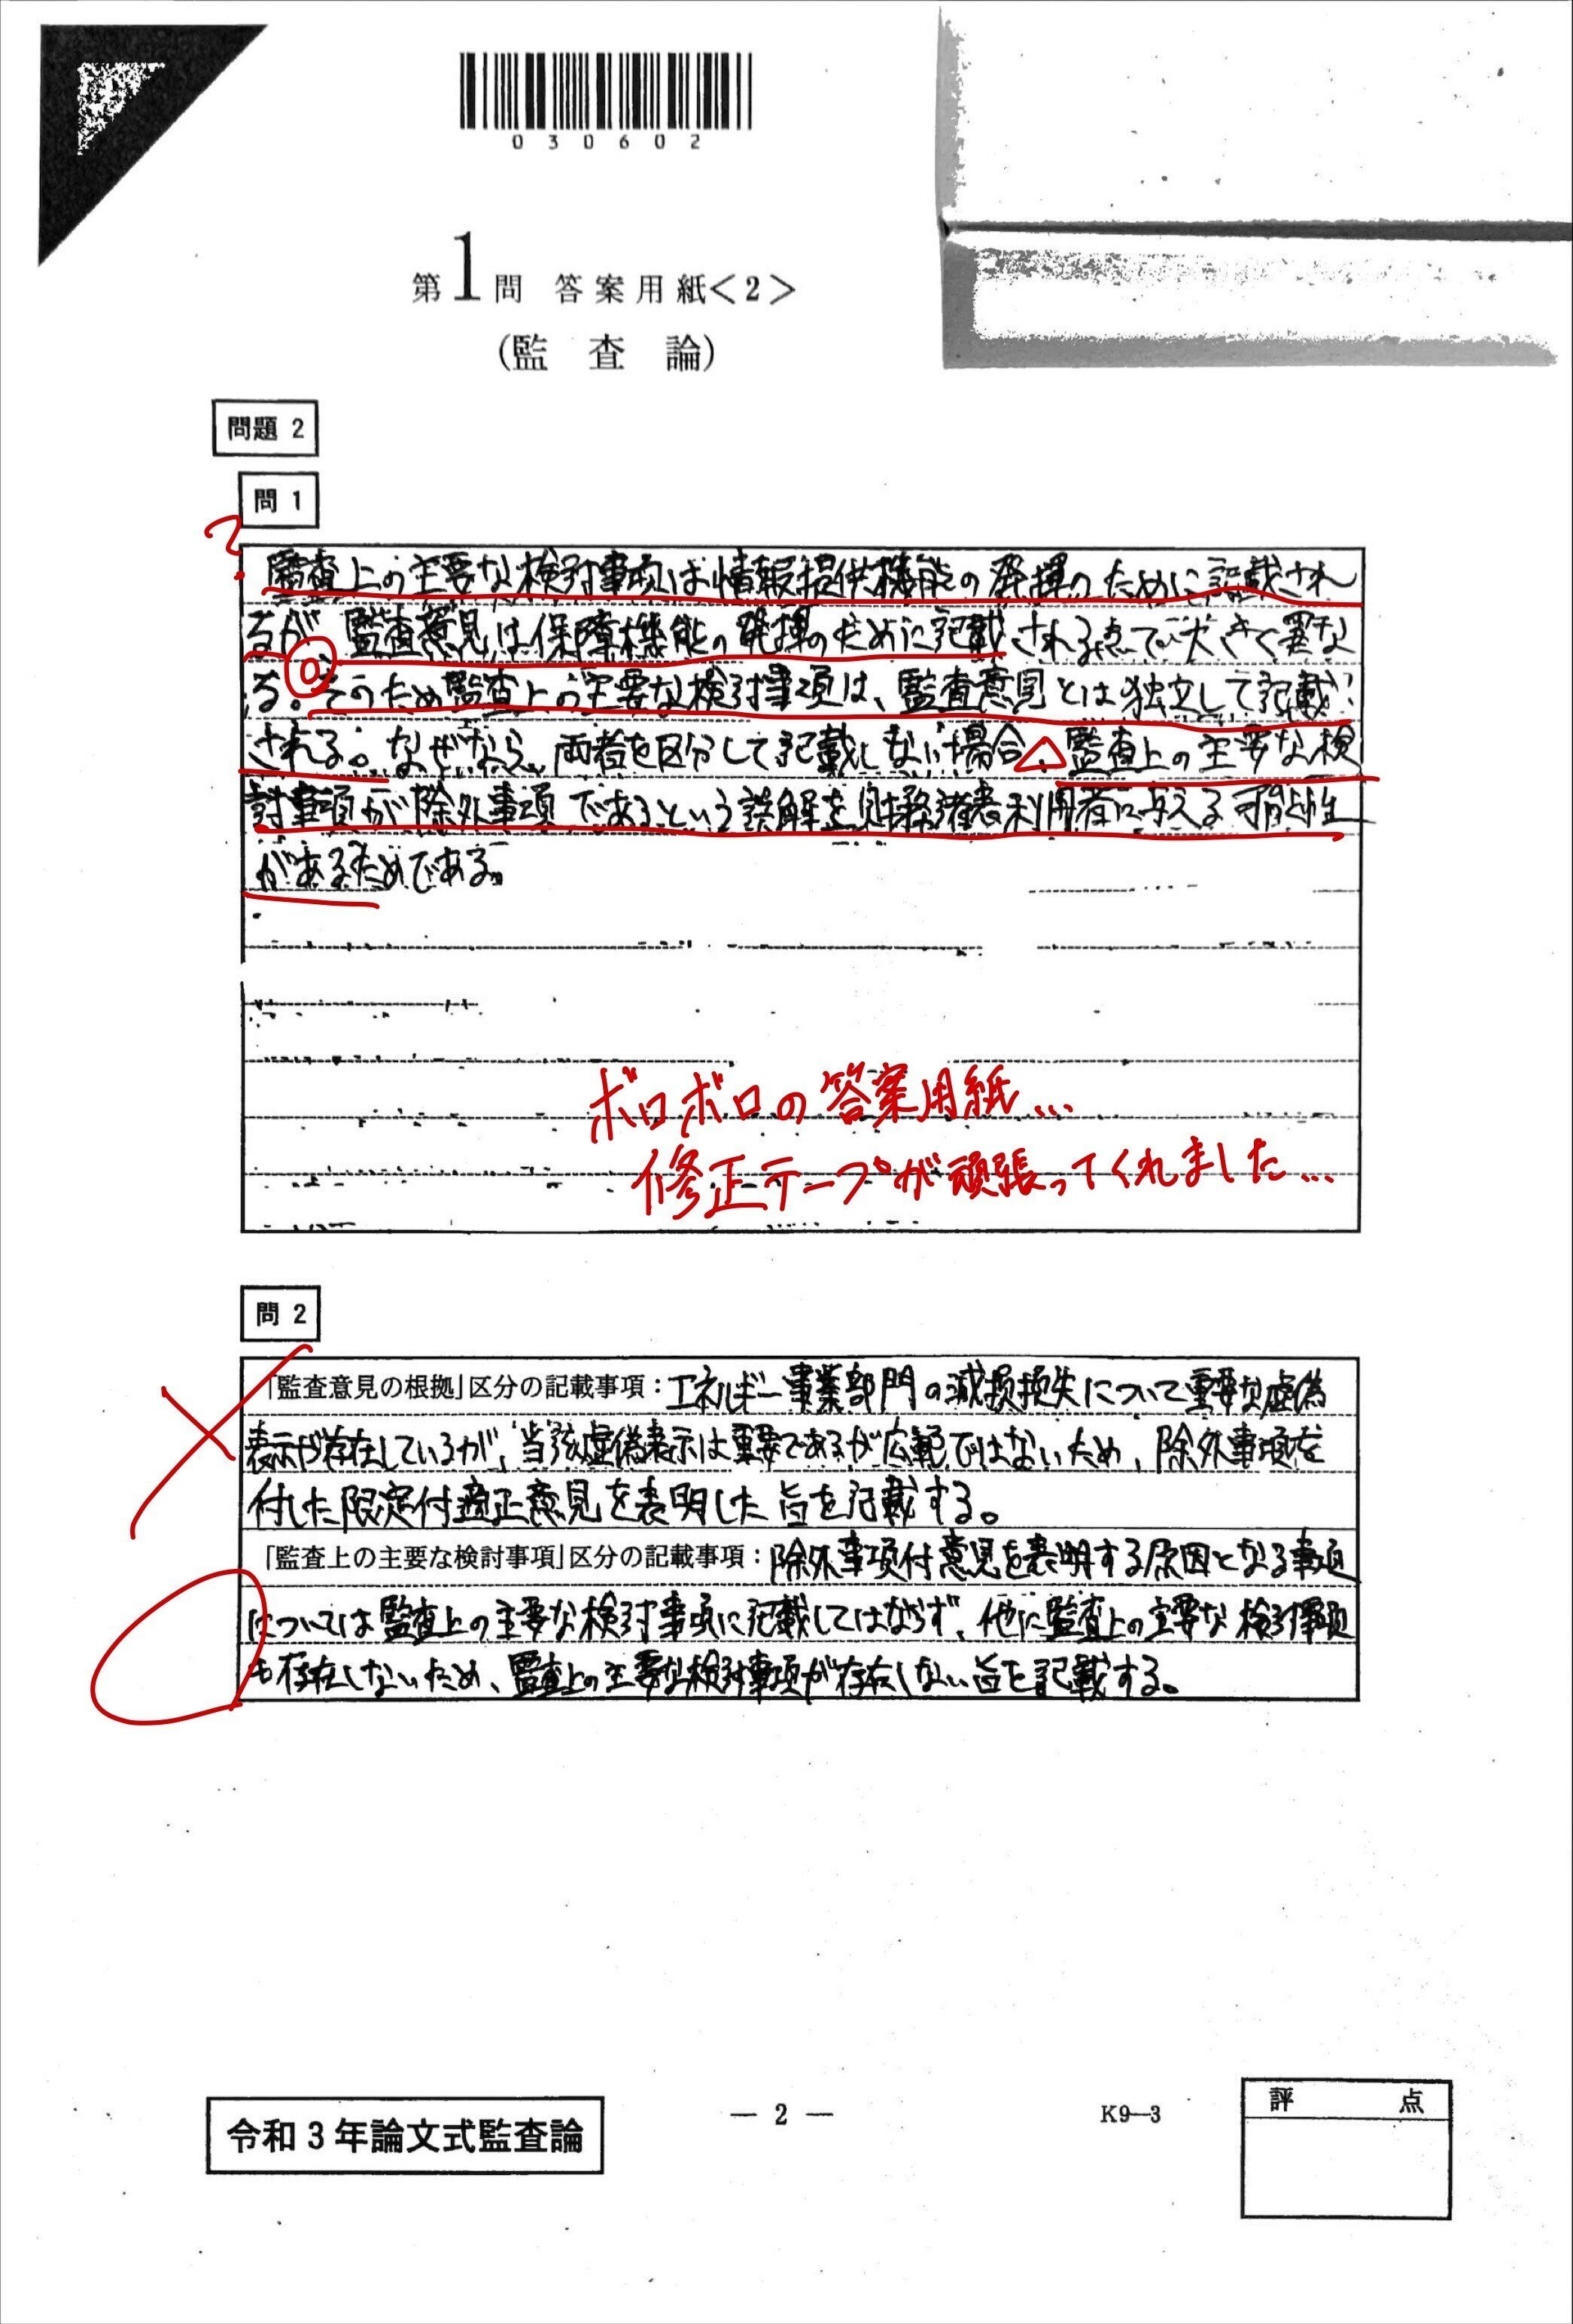 030602
第1問 答案用紙<2>
(監査論)
問題 2
問 1
?
監査上の主要な検討事項は情報提供機能の発揮のために記載され
るが、監査意見は保障機能の発揮のために記載される点で大きく異な
る。そのため監査上の主要な検討事項は、監査意見とは独立して記載
される。なぜなら、両者を区分して記載しない場合、監査上の主要な検
討事項が除外事項であるという誤解を財務諸表利用者に与える可能性
があるためである。
ボロボロの答案用紙…
修正テープが頑張ってくれました…
問 2
「監査意見の根拠」区分の記載事項：エネルギー事業部門の減損損失について重要な虚偽
表示が存在しているが、当該虚偽表示は重要であるが広範ではないため、除外事項を
付した限定付適正意見を表明した旨を記載する。
「監査上の主要な検討事項」区分の記載事項：除外事項付意見を表明する原因となる事項
については監査上の主要な検討事項に記載してはならず、他に監査上の主要な検討事項
も存在しないため、監査上の主要な検討事項が存在しない旨を記載する。
令和3年論文式監査論
— 2 —
K9—3
評 点